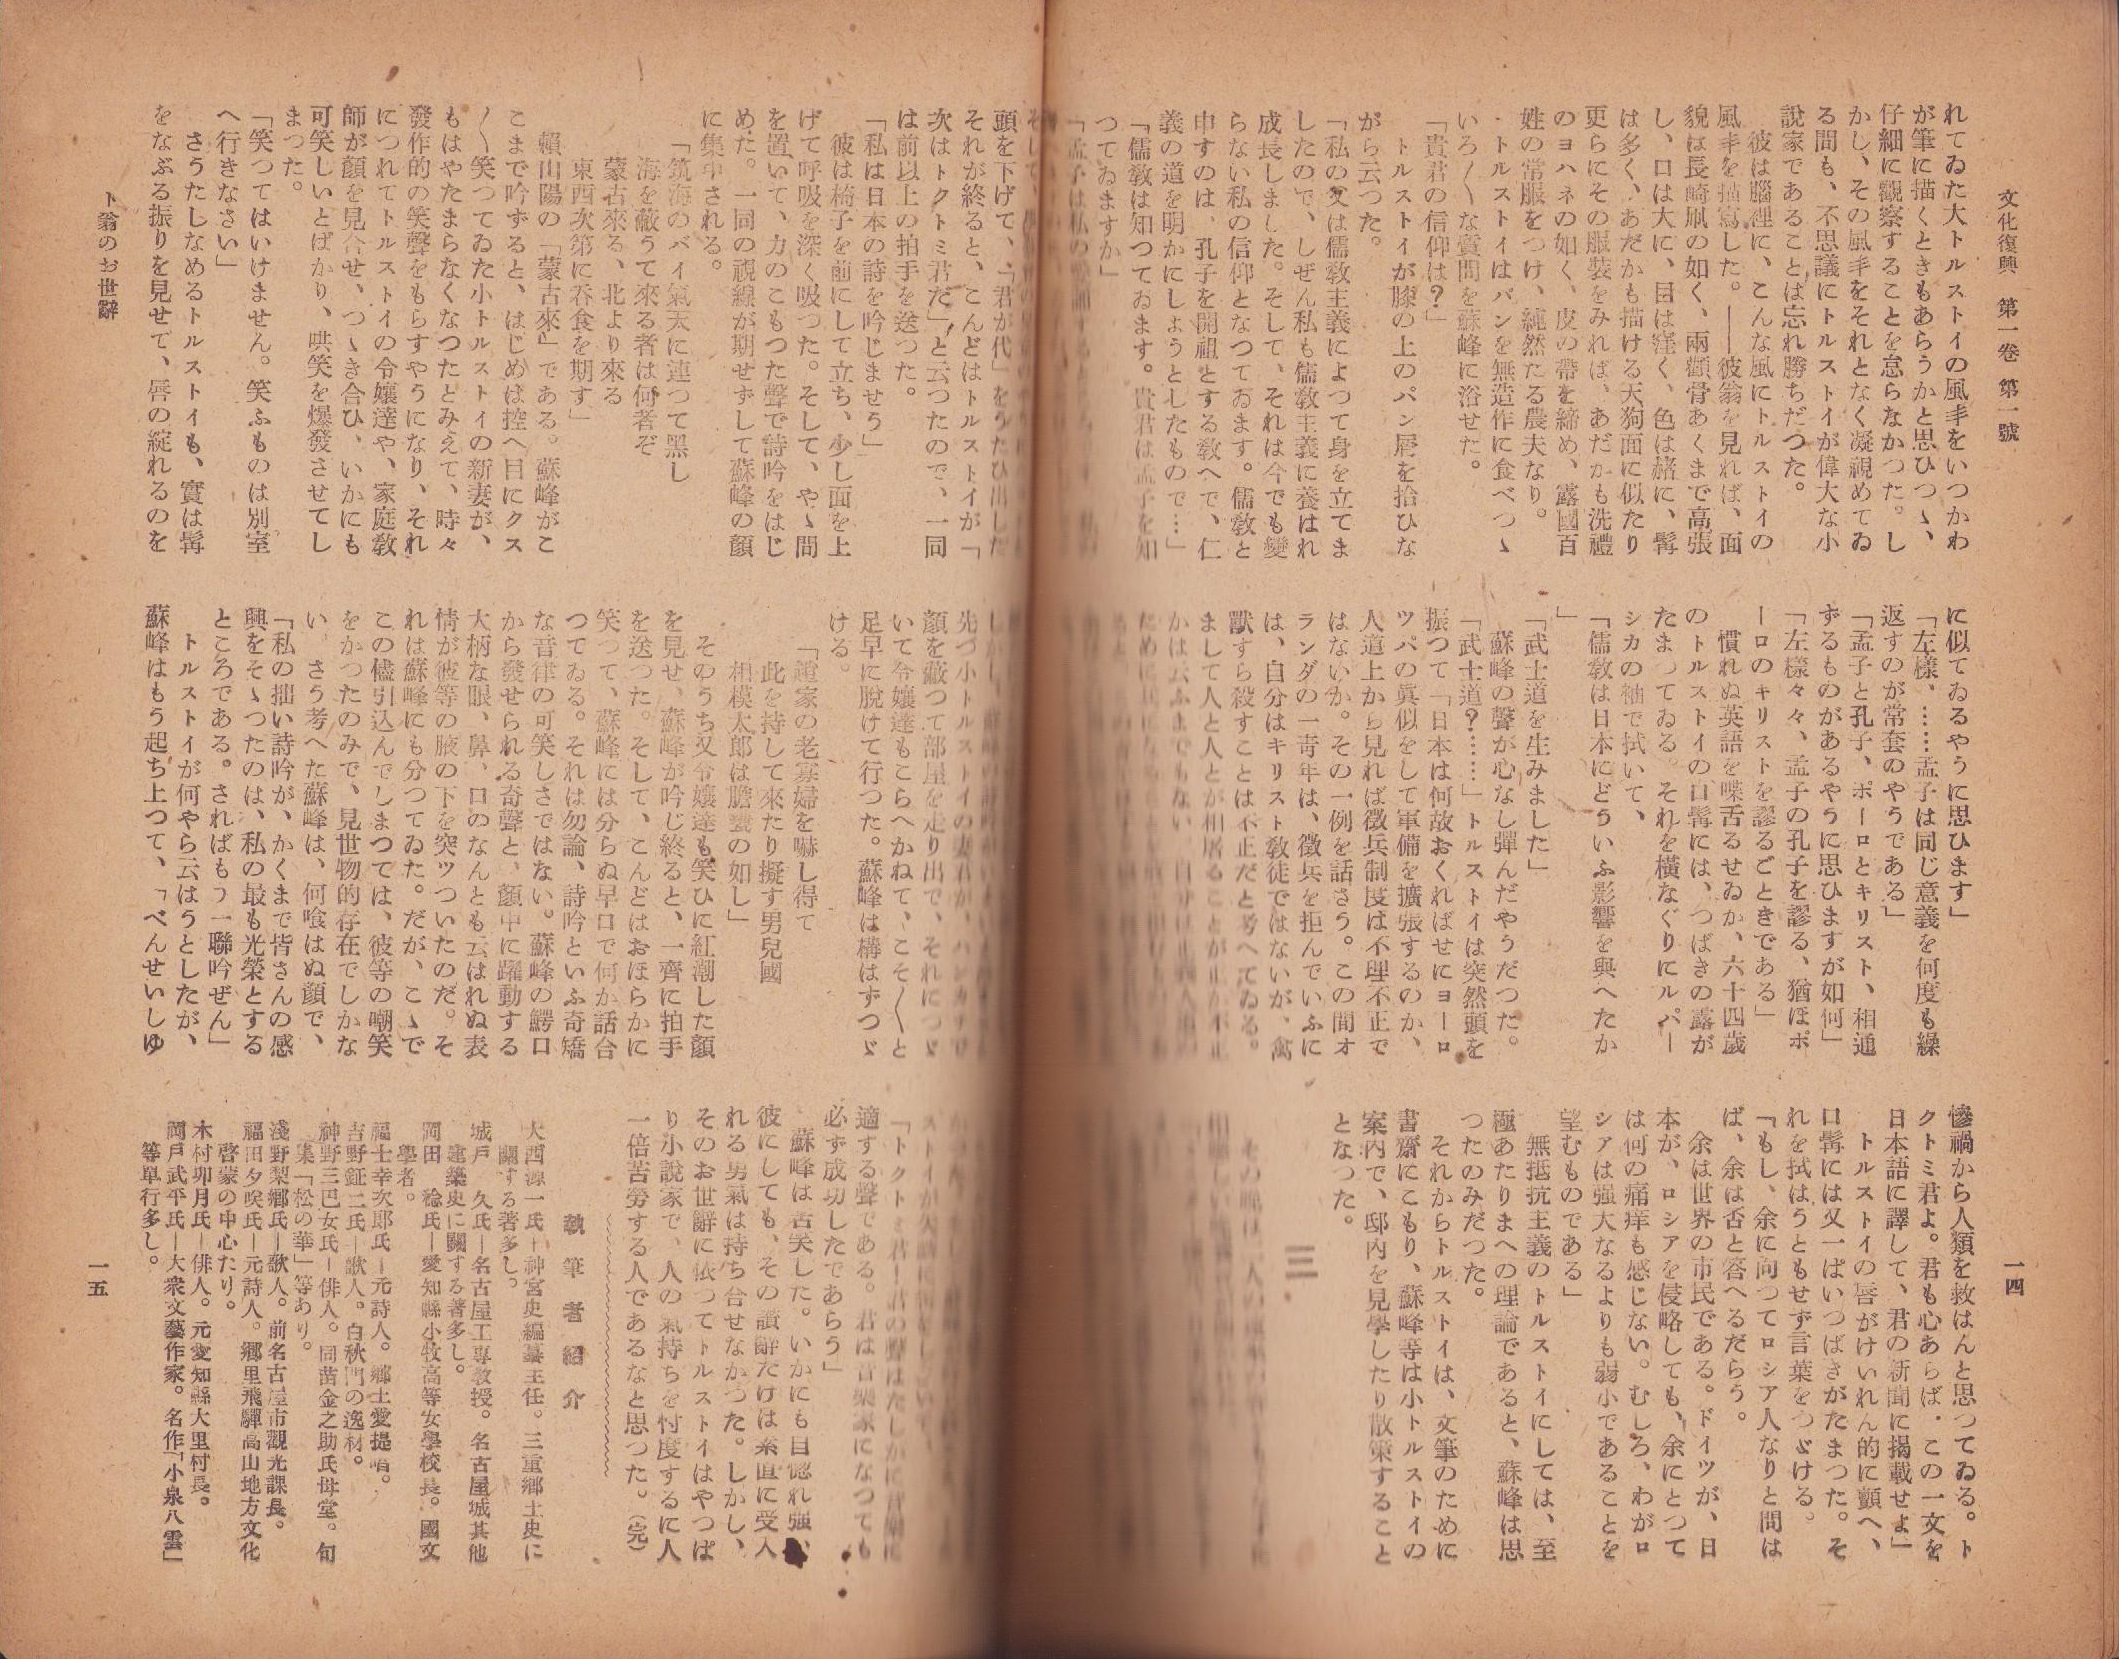 文化復興　第一卷 第一號
一四
れてゐた大トルストイの風丰をいつかわ
が筆に描くときもあらうかと思ひつゝ、
仔細に觀察することを怠らなかつた。し
かし、その風丰をそれとなく凝視めてゐ
る間も、不思議にトルストイが偉大な小
說家であることは忘れ勝ちだつた。
彼は腦裡に、こんな風にトルストイの
風丰を描寫した。――彼翁を見れば、面
貌は長崎凧の如く、兩顴骨あくまで高張
し、口は大に、目は窪く、色は赭に、髯
は多く、あだかも描ける天狗面に似たり
更らにその服裝をみれば、あだかも洗禮
のヨハネの如く、皮の帶を締め、露國百
姓の常服をつけ、純然たる農夫なり。
トルストイはパンを無造作に食べつゝ
いろ〳〵な質問を蘇峰に浴せた。
「貴君の信仰は?」
トルストイが膝の上のパン屑を拾ひな
がら云つた。
「私の父は儒敎主義によつて身を立てま
したので、しぜん私も儒敎主義に養はれ
成長しました。そして、それは今でも變
らない私の信仰となつてゐます。儒敎と
申すのは、孔子を開祖とする敎へで、仁
義の道を明かにしようとしたもので…」
「儒敎は知つてゐます。貴君は孟子を知
つてゐますか」
「孟子は私の
に似てゐるやうに思ひます」
「左樣、……孟子は同じ意義を何度も繰
返すのが常套のやうである」
「孟子と孔子、ポーロとキリスト、相通
ずるものがあるやうに思ひますが如何」
「左樣々々、孟子の孔子を謬る、猶ほポ
ーロのキリストを謬るごときである」
慣れぬ英語を喋舌るせゐか、六十四歲
のトルストイの口髯には、つばきの露が
たまつてゐる。それを橫なぐりにルパー
シカの袖で拭いて、
「儒敎は日本にどういふ影響を與へたか
」
「武士道を生みました」
蘇峰の聲が心なし彈んだやうだつた。
「武士道?……」トルストイは突然頭を
振つて「日本は何故おくればせにヨーロ
ツパの眞似をして軍備を擴張するのか、
人道上から見れば徵兵制度は不理不正で
はないか。その一例を話さう。この間オ
ランダの一靑年は、徵兵を拒んでいふに
は、自分はキリスト敎徒ではないが、禽
獸すら殺すことは不正だと考へてゐる。
まして人と人とが相屠ることが正か不正
かは云ふまでもない
慘禍から人類を救はんと思つてゐる。ト
クトミ君よ。君も心あらば、この一文を
日本語に譯して、君の新聞に揭載せよ」
トルストイの唇がけいれん的に顫へ、
口髯には又一ぱいつばさがたまつた。そ
れを拭はうともせず言葉をつゞける。
「もし、余に向つてロシア人なりと問は
ば、余は否と答へるだらう。
余は世界の市民である。ドイツが、日
本が、ロシアを侵略しても、余にとつて
は何の痛痒も感じない。むしろ、わがロ
シアは强大なるよりも弱小であることを
望むものである」
無抵抗主義のトルストイにしては、至
極あたりまへの理論であると、蘇峰は思
つたのみだつた。
それからトルストイは、文筆のために
書齋にこもり、蘇峰等は小トルストイの
案內で、邸內を見學したり散策すること
となつた。
三
頭を下げて、「君が代」をうたひ出した
それが終ると、こんどはトルストイが「
次はトクトミ君だ」と云つたので、一同
は前以上の拍手を送つた。
「私は日本の詩を吟じませう」
彼は椅子を前にして立ち、少し面を上
げて呼吸を深く吸つた。そして、やゝ間
を置いて、力のこもつた聲で詩吟をはじ
めた。一同の視線が期せずして蘇峰の顏
に集中される。
「筑海のバイ氣天に連つて黑し
海を蔽うて來る者は何者ぞ
蒙古來る、北より來る
東西次第に呑食を期す」
賴山陽の「蒙古來』である。蘇峰がこ
こまで吟ずると、はじめは控へ目にクス
〳〵笑つてゐた小トルストイの新妻が、
もはやたまらなくなつたとみえて、時々
發作的の笑聲をもらすやうになり、それ
につれてトルストイの令孃達や、家庭敎
師が顏を見合せ、つゝき合ひ、いかにも
可笑しいとばかり、哄笑を爆發させてし
まつた。
「笑つてはいけません。笑ふものは別室
へ行きなさい」
さうたしなめるトルストイも、實は髯
をなぶる振りを見せて、唇の綻れるのを
先づ小トルストイの妻君が、ハンカチで
顏を蔽つて部屋を走り出で、それにつゞ
いて令孃達もこらへかねて、こそ〳〵と
足早に脫けて行つた。蘇峰は構はずつゞ
ける。
「趙家の老寡婦を嚇し得て
此を持して來たり擬す男兒國
相模太郎は膽甕の如し」
そのうち又令孃達も笑ひに紅潮した顏
を見せ、蘇峰が吟じ終ると、一齊に拍手
を送つた。そして、こんどはおほらかに
笑つて、蘇峰には分らぬ早口で何か話合
つてゐる。それは勿論、詩吟といふ奇矯
な音律の可笑しさではない。蘇峰の鰐口
から發せられる奇聲と、顏中に躍動する
大柄な眼、鼻、口のなんとも云はれぬ表
情が彼等の腋の下を突ツついたのだ。そ
れは蘇峰にも分つてゐた。だが、こゝで
この儘引込んでしまつては、彼等の嘲笑
をかつたのみで、見世物的存在でしかな
い。さう考へた蘇峰は、何喰はぬ顏で、
「私の拙い詩吟が、かくまで皆さんの感
興をそゝつたのは、私の最も光榮とする
ところである。さればもフ一聯吟ぜん」
トルストイが何やら云はうとしたが、
蘇峰はもう起ち上つて、「べんせいしゆ
「トクトミ君―君の聲はたしかに音樂に
適する聲である。君は音樂家になつても
必ず成功したであらう」
蘇峰は苦笑した。いかにも自惚れ强い
彼にしても、その讚辭だけは素直に受入
れる勇氣は持ち合せなかつた。しかし、
そのお世辭に依つてトルストイはやつぱ
り小說家で、人の氣持ちを忖度するに人
一倍苦勞する人であるなと思つた。（完）
執筆者紹介
大西源一氏―神宮史編纂主任。三重鄕土史に
關する著多し。
城戶　久氏―名古屋工專敎授。名古屋城其他
建築史に關する著多し。
岡田　稔氏―愛知縣小牧高等女學校長。國文
學者。
福士幸次郎氏―元詩人。鄕土愛提唱。
吉野鉦二氏―歌人。白秋門の逸材。
神野三巴女氏―俳人。同菑金之助氏母堂。句
集「松の華」等あり。
淺野梨鄕氏―歌人。前名古屋市觀光課長。
福田夕咲氏―元詩人。鄕里飛驒高山地方文化
啓蒙の中心たり。
木村卯月氏―俳人。元愛知縣大里村長。
岡戶武平氏―大衆文藝作家。名作「小泉八雲」
等單行多し。
ト翁のお世辭
一五